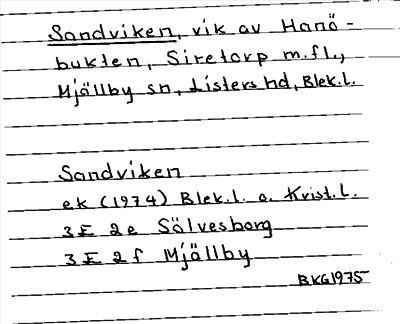 Sandviken, vik av Hanö-
bukten, Siretorp m.fl.,
Mjällby sn, Listers hd, Blek.l.
Sandviken
ek (1974) Blek.l. o. Krist.l.
3E 2e Sölvesborg
3E 2f Mjällby
BKG1975